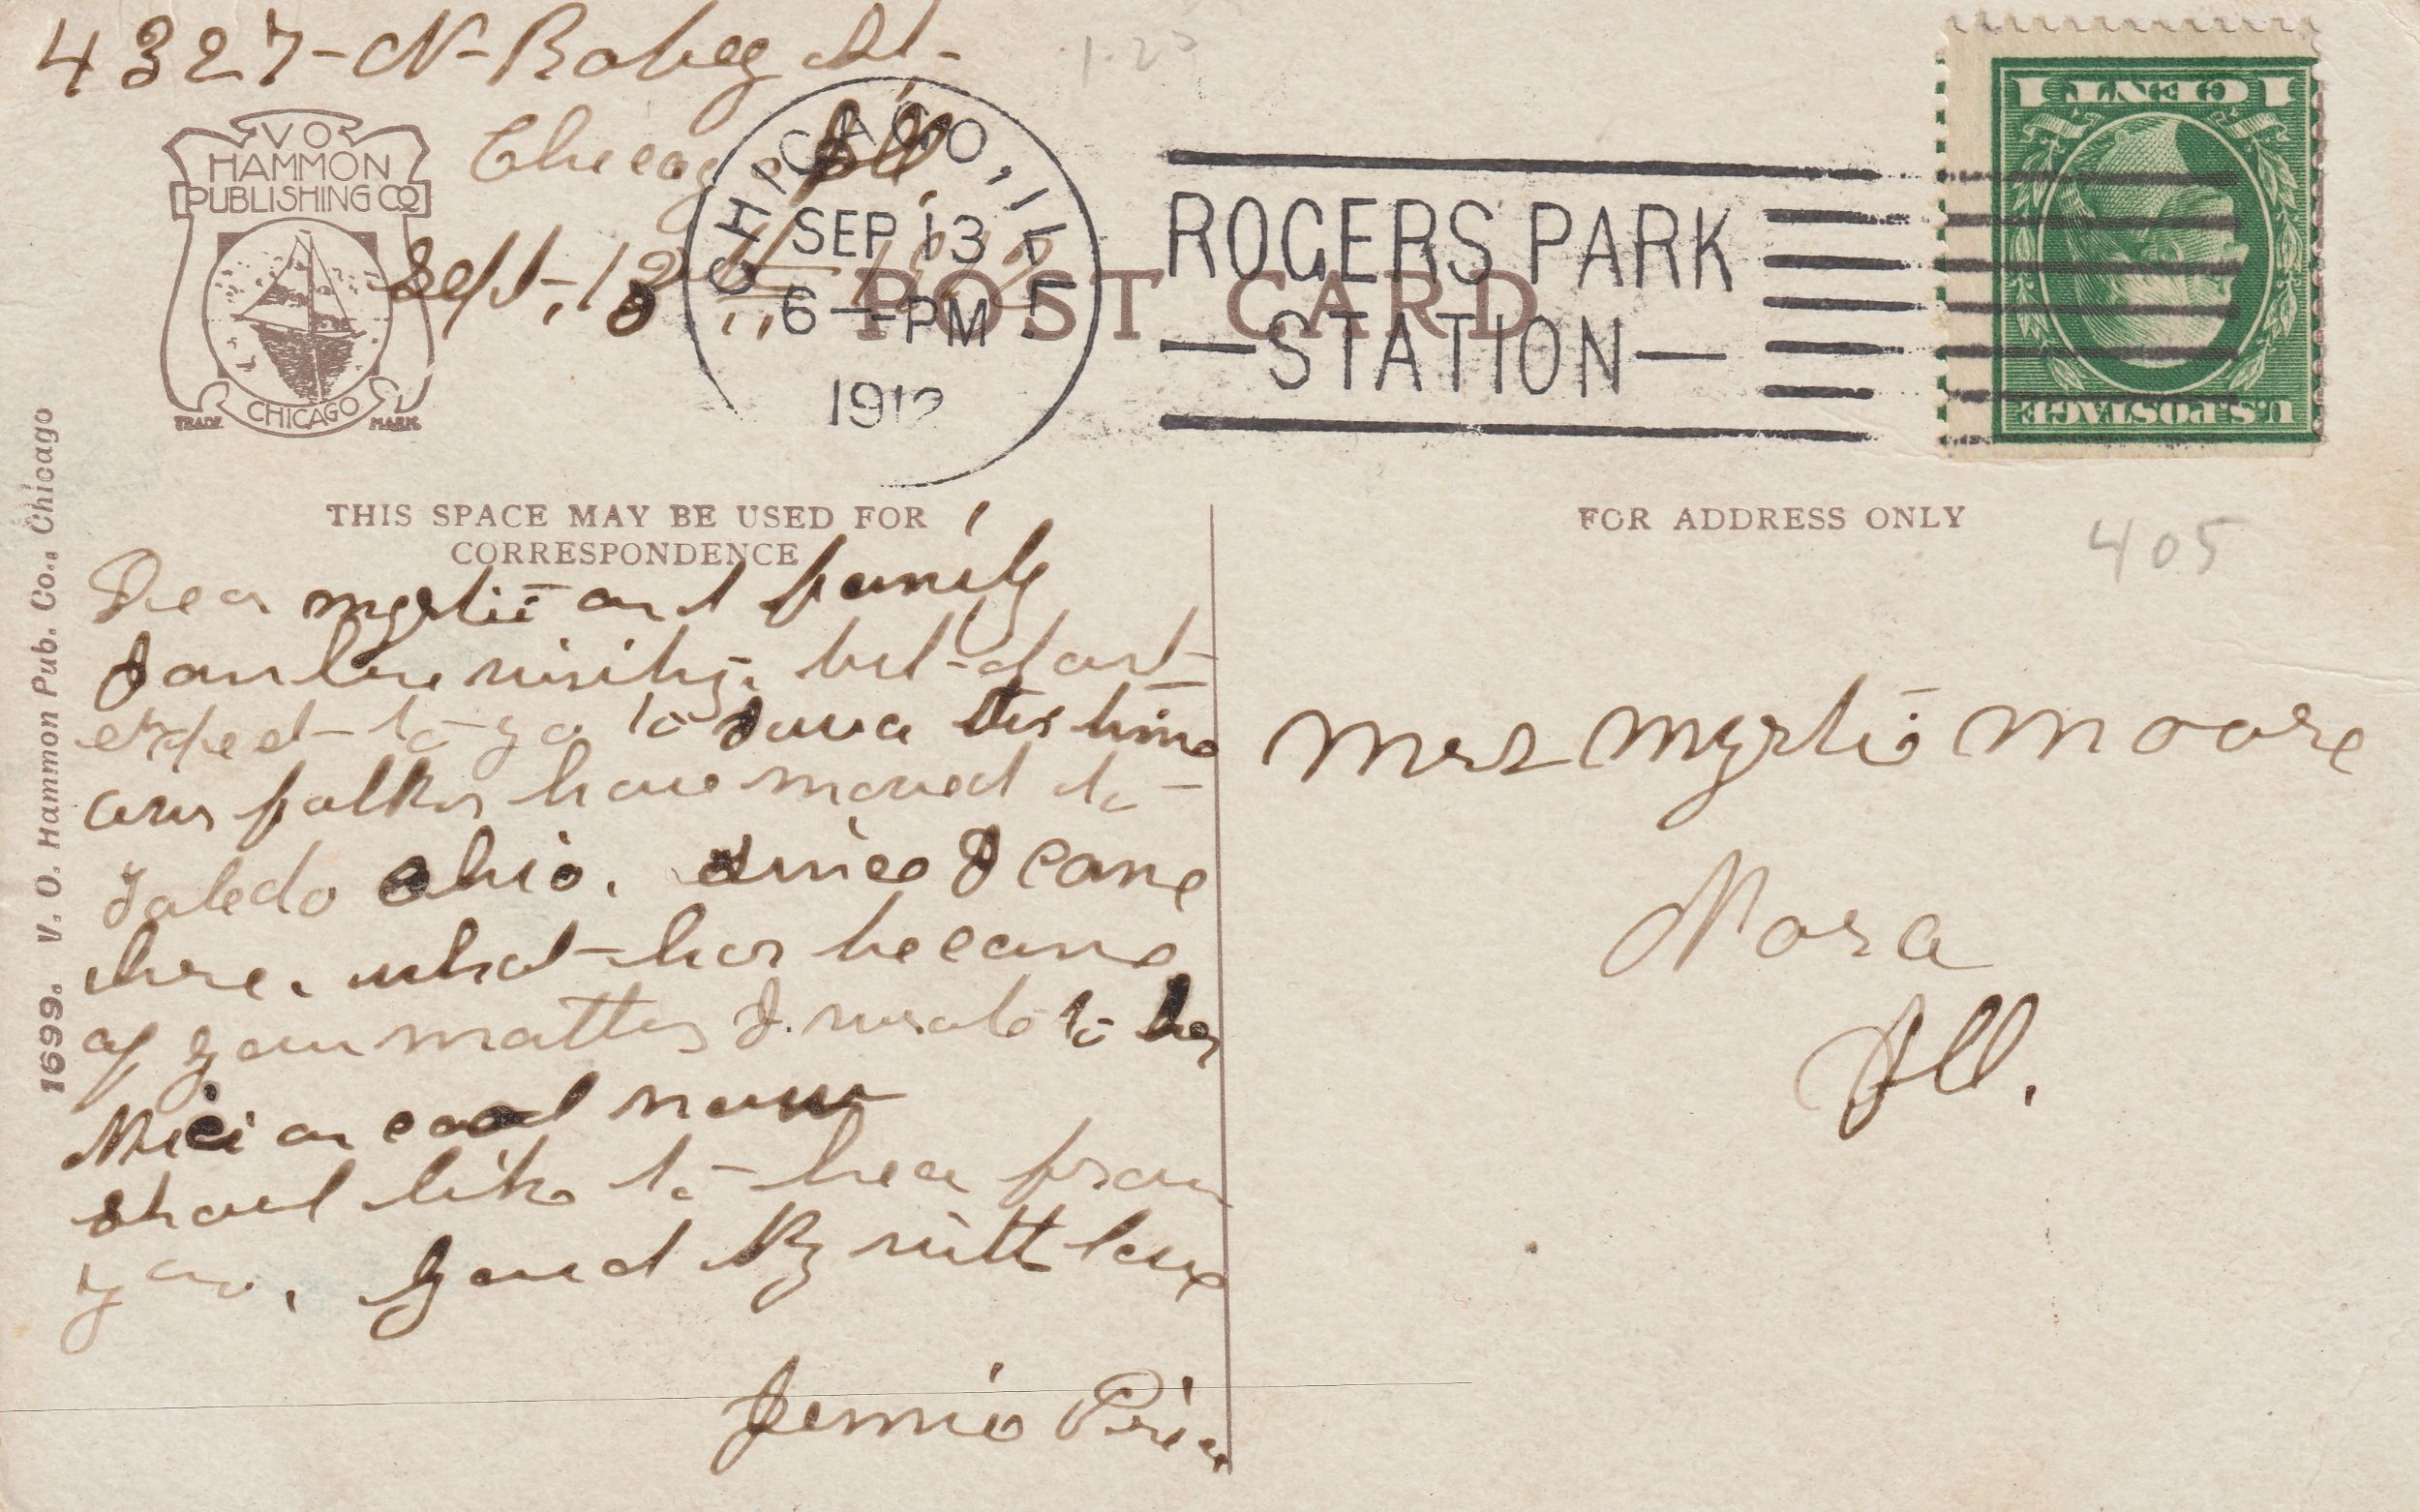 4327-N-Robey St-
Chicago Ill,
Sept, 13 1912
1.25
V O
HAMMON
PUBLISHING CO
CHICAGO
TRADE MARK
CHICAGO, ILL.
SEP 13
6 - PM
1912
ROGERS PARK
STATION
POST CARD
1 CENT 1
U.S. POSTAGE
THIS SPACE MAY BE USED FOR
CORRESPONDENCE
FOR ADDRESS ONLY
405
1699. V. O. Hammon Pub. Co., Chicago
Dear Myrtie and family
I am here visiting, but dont
expect to go to Iowa this time
our folks have moved to
Toledo Ohio. since I came
here. what has became
of your mother I wrote to her
Nice an cool now
shoul like to hear from
you. good By with love
Jennie Price
Mrs Myrtie Moore
Nora
Ill.